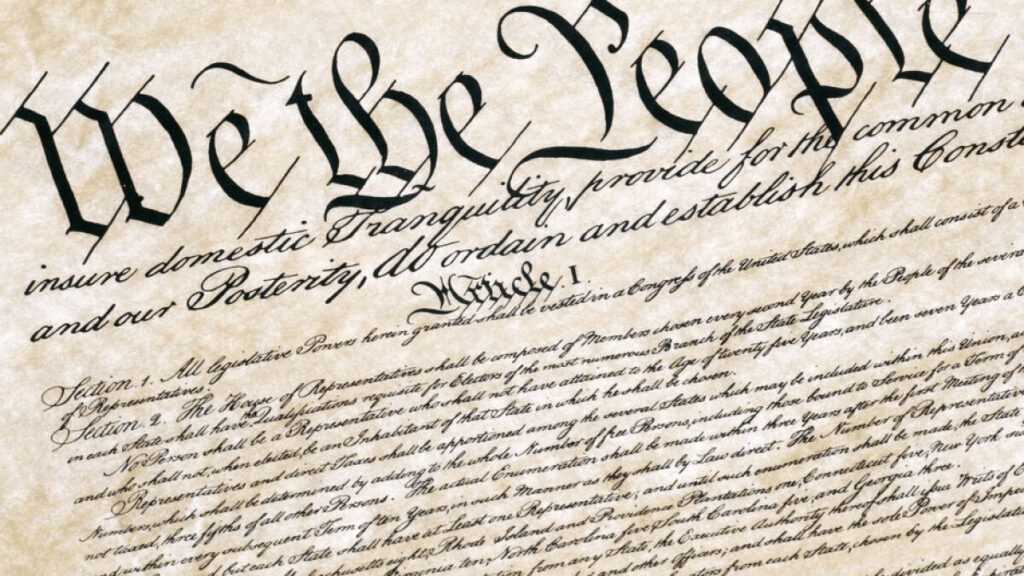 We the People
insure domestic Tranquility, provide for the common
and our Posterity, do ordain and establish this Const
Article. I.
Section. 1. All legislative Powers herein granted shall be vested in a Congress of the United States, which shall consist of a
of Representatives.
Section. 2. The House of Representatives shall be composed of Members chosen every second Year by the People of the several
in each State shall have the Qualifications requisite for Electors of the most numerous Branch of the State Legislature.
No Person shall be a Representative who shall not have attained to the Age of twenty five Years, and been seven Years a
and who shall not, when elected, be an Inhabitant of that State in which he shall be chosen.
Representatives and direct Taxes shall be apportioned among the several States which may be included within this Union, and
Numbers, which shall be determined by adding to the whole Number of free Persons, including those bound to Service for a Term of
not taxed, three fifths of all other Persons. The actual Enumeration shall be made within three Years after the first Meeting of
and within every subsequent Term of ten Years, in such Manner as they shall by Law direct. The Number of Representatives
but each State shall have at Least one Representative; and until such enumeration shall be made, the State
eight, Rhode Island and Providence Plantations one, Connecticut five, New York
ten, North Carolina five, South Carolina five, and Georgia three.
from any State, the Executive Authority thereof shall issue Writs of
and other Officers; and shall have the sole Power of
from each State, chosen by the
divided as equally